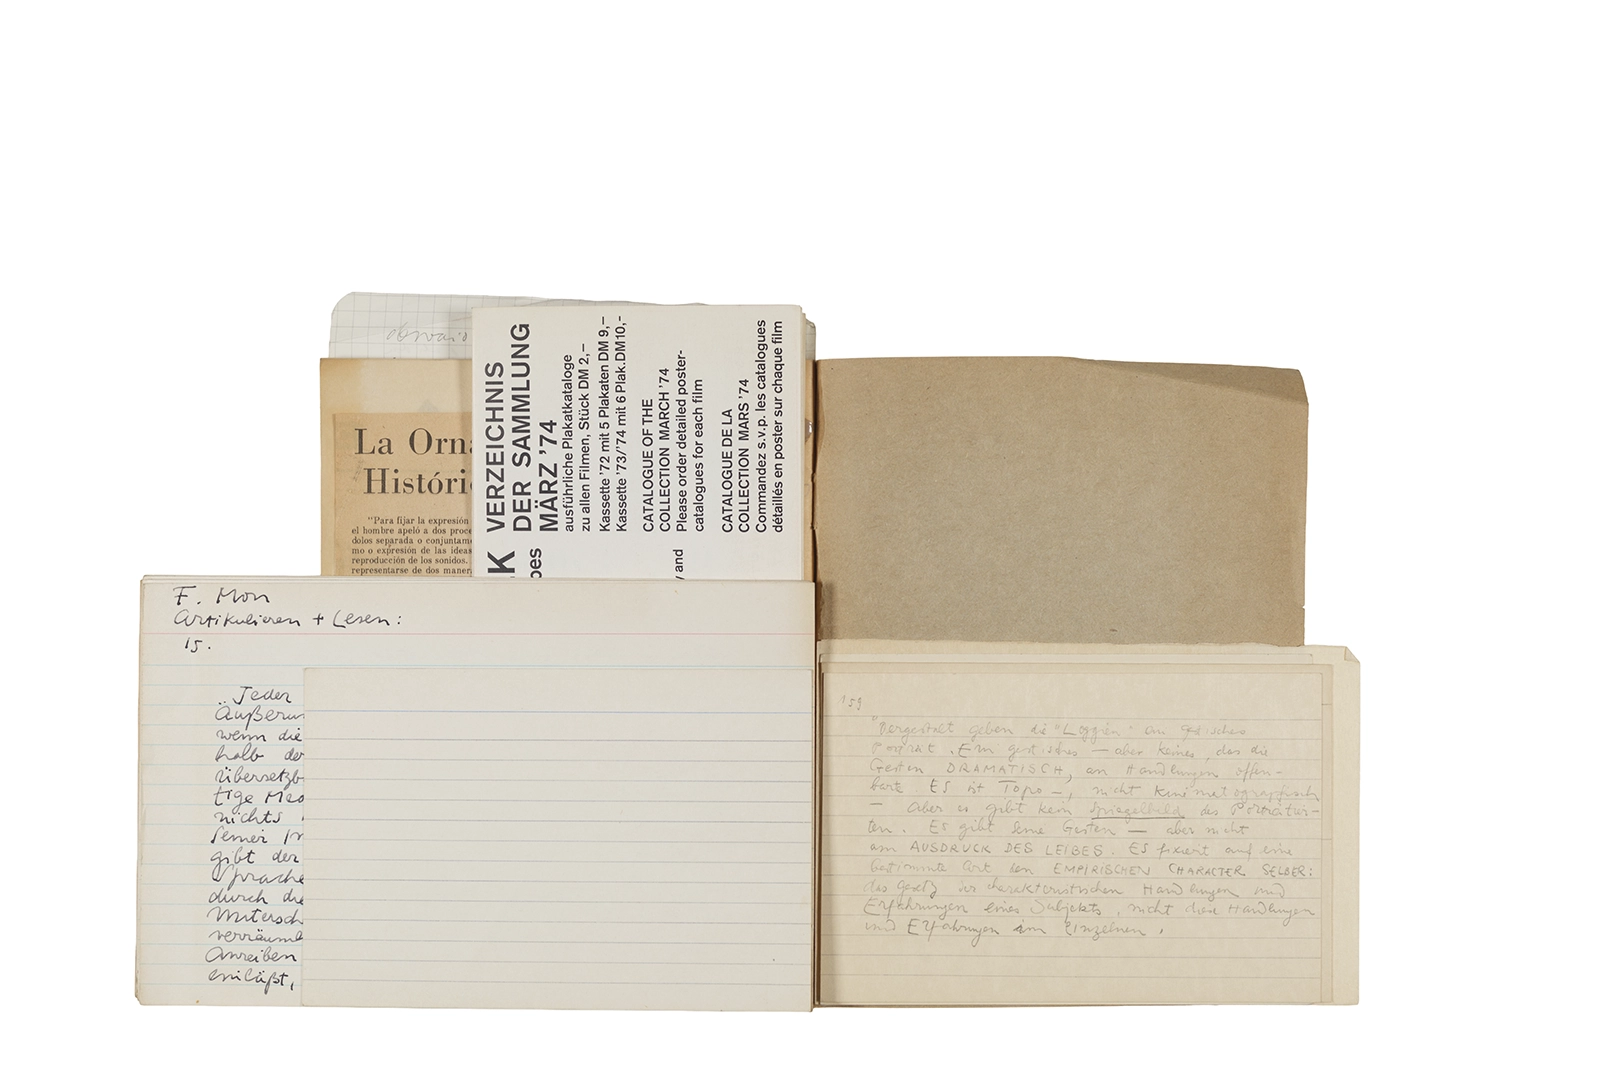 La Orna
Históri
"Para fijar la expresión
el hombre apeló a dos proce
dolos separada o conjuntame
mo o expresión de las ideas
reproducción de los sonidos.
representarse de dos maner
VERZEICHNIS
DER SAMMLUNG
MÄRZ '74
ausführliche Plakatkataloge
zu allen Filmen, Stück DM 2,–
Kassette '72 mit 5 Plakaten DM 9,–
Kassette '73/'74 mit 6 Plak.DM10,-
CATALOGUE OF THE
COLLECTION MARCH '74
Please order detailed poster-
catalogues for each film
CATALOGUE DE LA
COLLECTION MARS '74
Commandez s.v.p. les catalogues
détaillés en poster sur chaque film
K
pes
y and
F. Mon
Artikulieren + Lesen:
15.
Jeder
Äußerun
wenn die
halb der
Übersetzb
tige Med
nichts
seiner
gibt der
Sprache
durch die
Untersch
verräuml
Anreiben
einläßt,
159
"Dergestalt geben die "Loggien" ein gestisches
Porträt. Ein gestisches — aber keines, das die
Gesten DRAMATISCH, an Handlungen offen-
barte. ES ist Topo-, nicht kinematographisch
— Aber es gibt kein Spiegelbild des Porträtier-
ten. Es gibt seine Gesten — aber nicht
am AUSDRUCK DES LEIBES. ES fixiert auf eine
bestimmte Art den EMPIRISCHEN CHARACTER SELBER:
das Gesetz der charakteristischen Handlungen und
Erfahrungen eines Subjekts, nicht diese Handlungen
und Erfahrungen im Einzelnen.